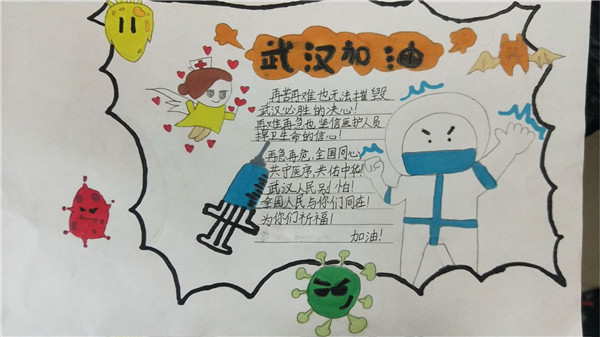 武汉加油
再苦再难也无法摧毁
武汉必胜的决心!
再难再急也坚信医护人员
捍卫生命的信心!
再急再危,全国同心
共守医序,共佑中华!
武汉人民别怕!
全国人民与你们同在!
为你们祈福!
加油!